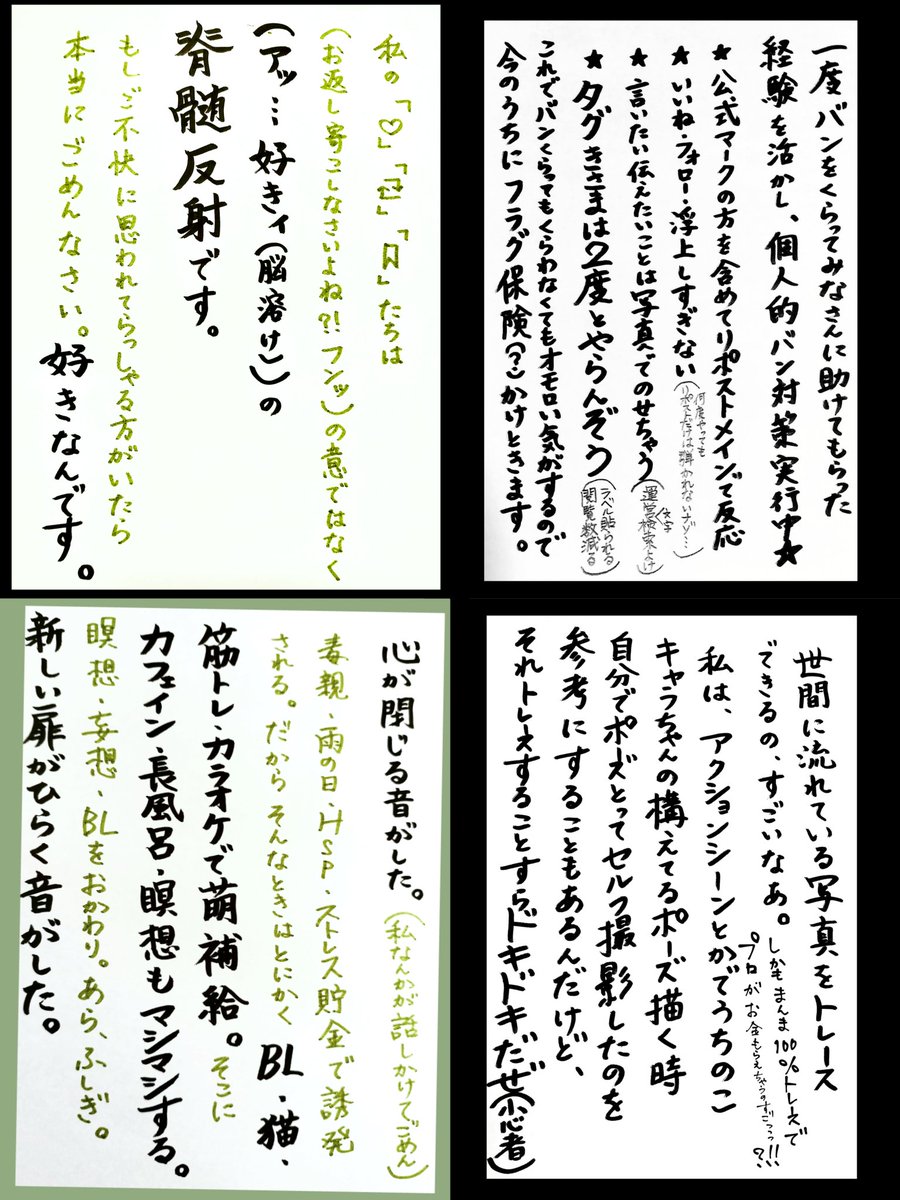 私の「♡」「🔁」「🔖」たちは
(お返し寄こしなさいよね?!フンッ)の意ではなく
(アッ…好きィ(脳溶け))の
脊髄反射です。
もしご不快に思われてらっしゃる方がいたら
本当にごめんなさい。好きなんです。
一度バンをくらってみなさんに助けてもらった
経験を活かし、個人的バン対策実行中★
★公式マークの方を含めてリポストメインで反応
★いいね・フォロー・浮上しすぎない(何度やっても
リポストだけは弾かれないナゾ…)
★言いたい伝えたいことは写真でのせちゃう(運営文字
検索よけ)
★タグきさまは2度とやらんぞう(ラベル貼られる
閲覧数減る)
これでバンくらってもくらわなくてもオモロい気がするので
今のうちにフラグ保険(?)かけときます。
心が閉じる音がした。(私なんかが話しかけてごめん)
毒親・雨の日・HSP・ストレス貯金で誘発
される。だからそんなときはとにかくBL・猫、
筋トレ・カラオケで萌補給。そこに
カフェイン・長風呂・瞑想もマシマシする。
瞑想・妄想・BLをおかわり。あら、ふしぎ。
新しい扉がひらく音がした。
世間に流れている写真をトレース
できるの、すごいなぁ。しかもまんま100%トレースで
プロがお金もらえちゃうのすごっっ!!?
私は、アクションシーンとかでうちのこ
キャラちゃんの構えてるポーズ描く時
自分でポーズとってセルフ撮影したのを
参考にすることもあるんだけど、
それトレースすることすらドキドキだぜ(小心者)